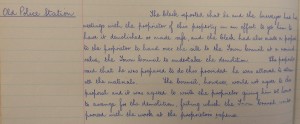 Old Police Station.
The Clerk reported that he and the Surveyor had had
meetings with the proprietor of this property in an effort to get him to
have it demolished or made safe, and the Clerk had also made a proposal
to the proprietor to hand over the site to the Town Council at a nominal
value, the Town Council to undertake the demolition. The proprietor
said that he was prepared to do this provided he was allowed to
the materials. The Council, however, would not agree to the
proposal and it was agreed to write the proprietor giving him
to arrange for the demolition, failing which the Town Council would
proceed with the work at the proprietor's expense.